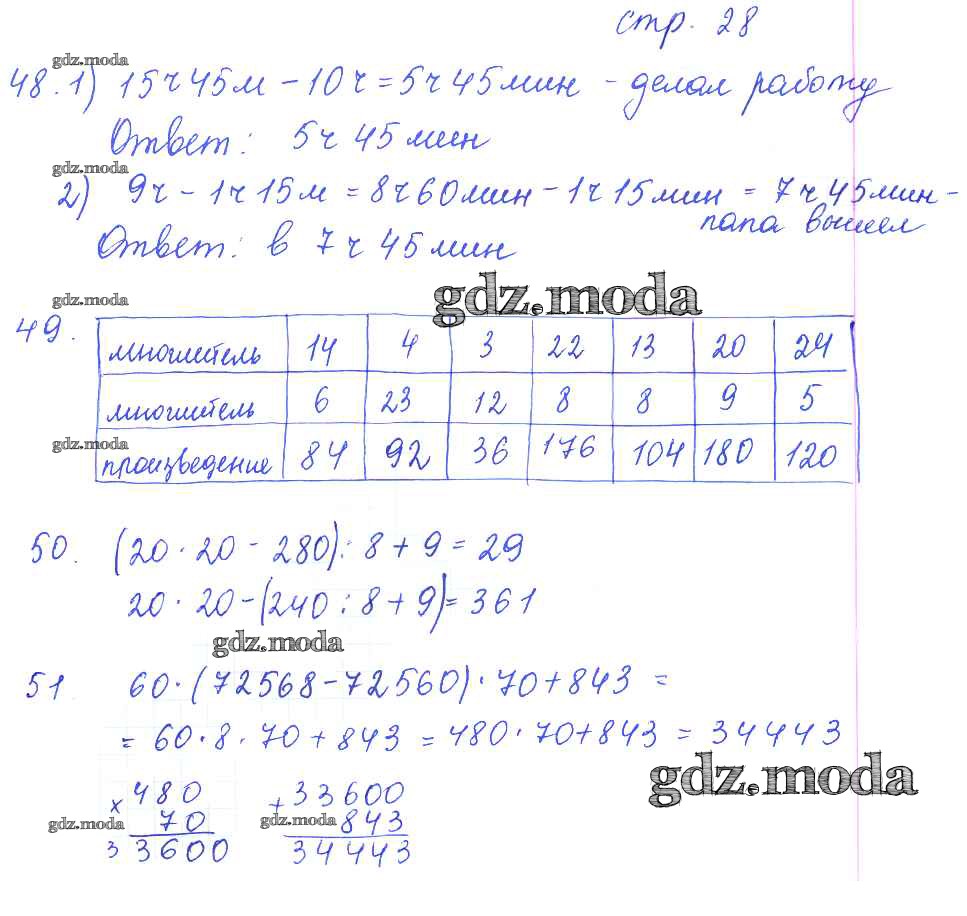 стр. 28
gdz.moda
48. 1) 15ч 45м - 10ч = 5ч 45мин - делал работу
Ответ: 5ч 45мин
gdz.moda
2) 9ч - 1ч 15м = 8ч 60мин - 1ч 15мин = 7ч 45мин -
папа вышел
Ответ: в 7ч 45мин
gdz.moda
gdz.moda
49.
множитель 14 4 3 22 13 20 24
множитель 6 23 12 8 8 9 5
gdz.moda
произведение 84 92 36 176 104 180 120
50. (20 · 20 - 280) : 8 + 9 = 29
20 · 20 - (240 : 8 + 9) = 361
gdz.moda
51 60 · (72568 - 72560) · 70 + 843 =
= 60 · 8 · 70 + 843 = 480 · 70 + 843 = 34443
gdz.moda
x 480 + 33600
gdz.moda 70 gdz.moda 843
33600 34443